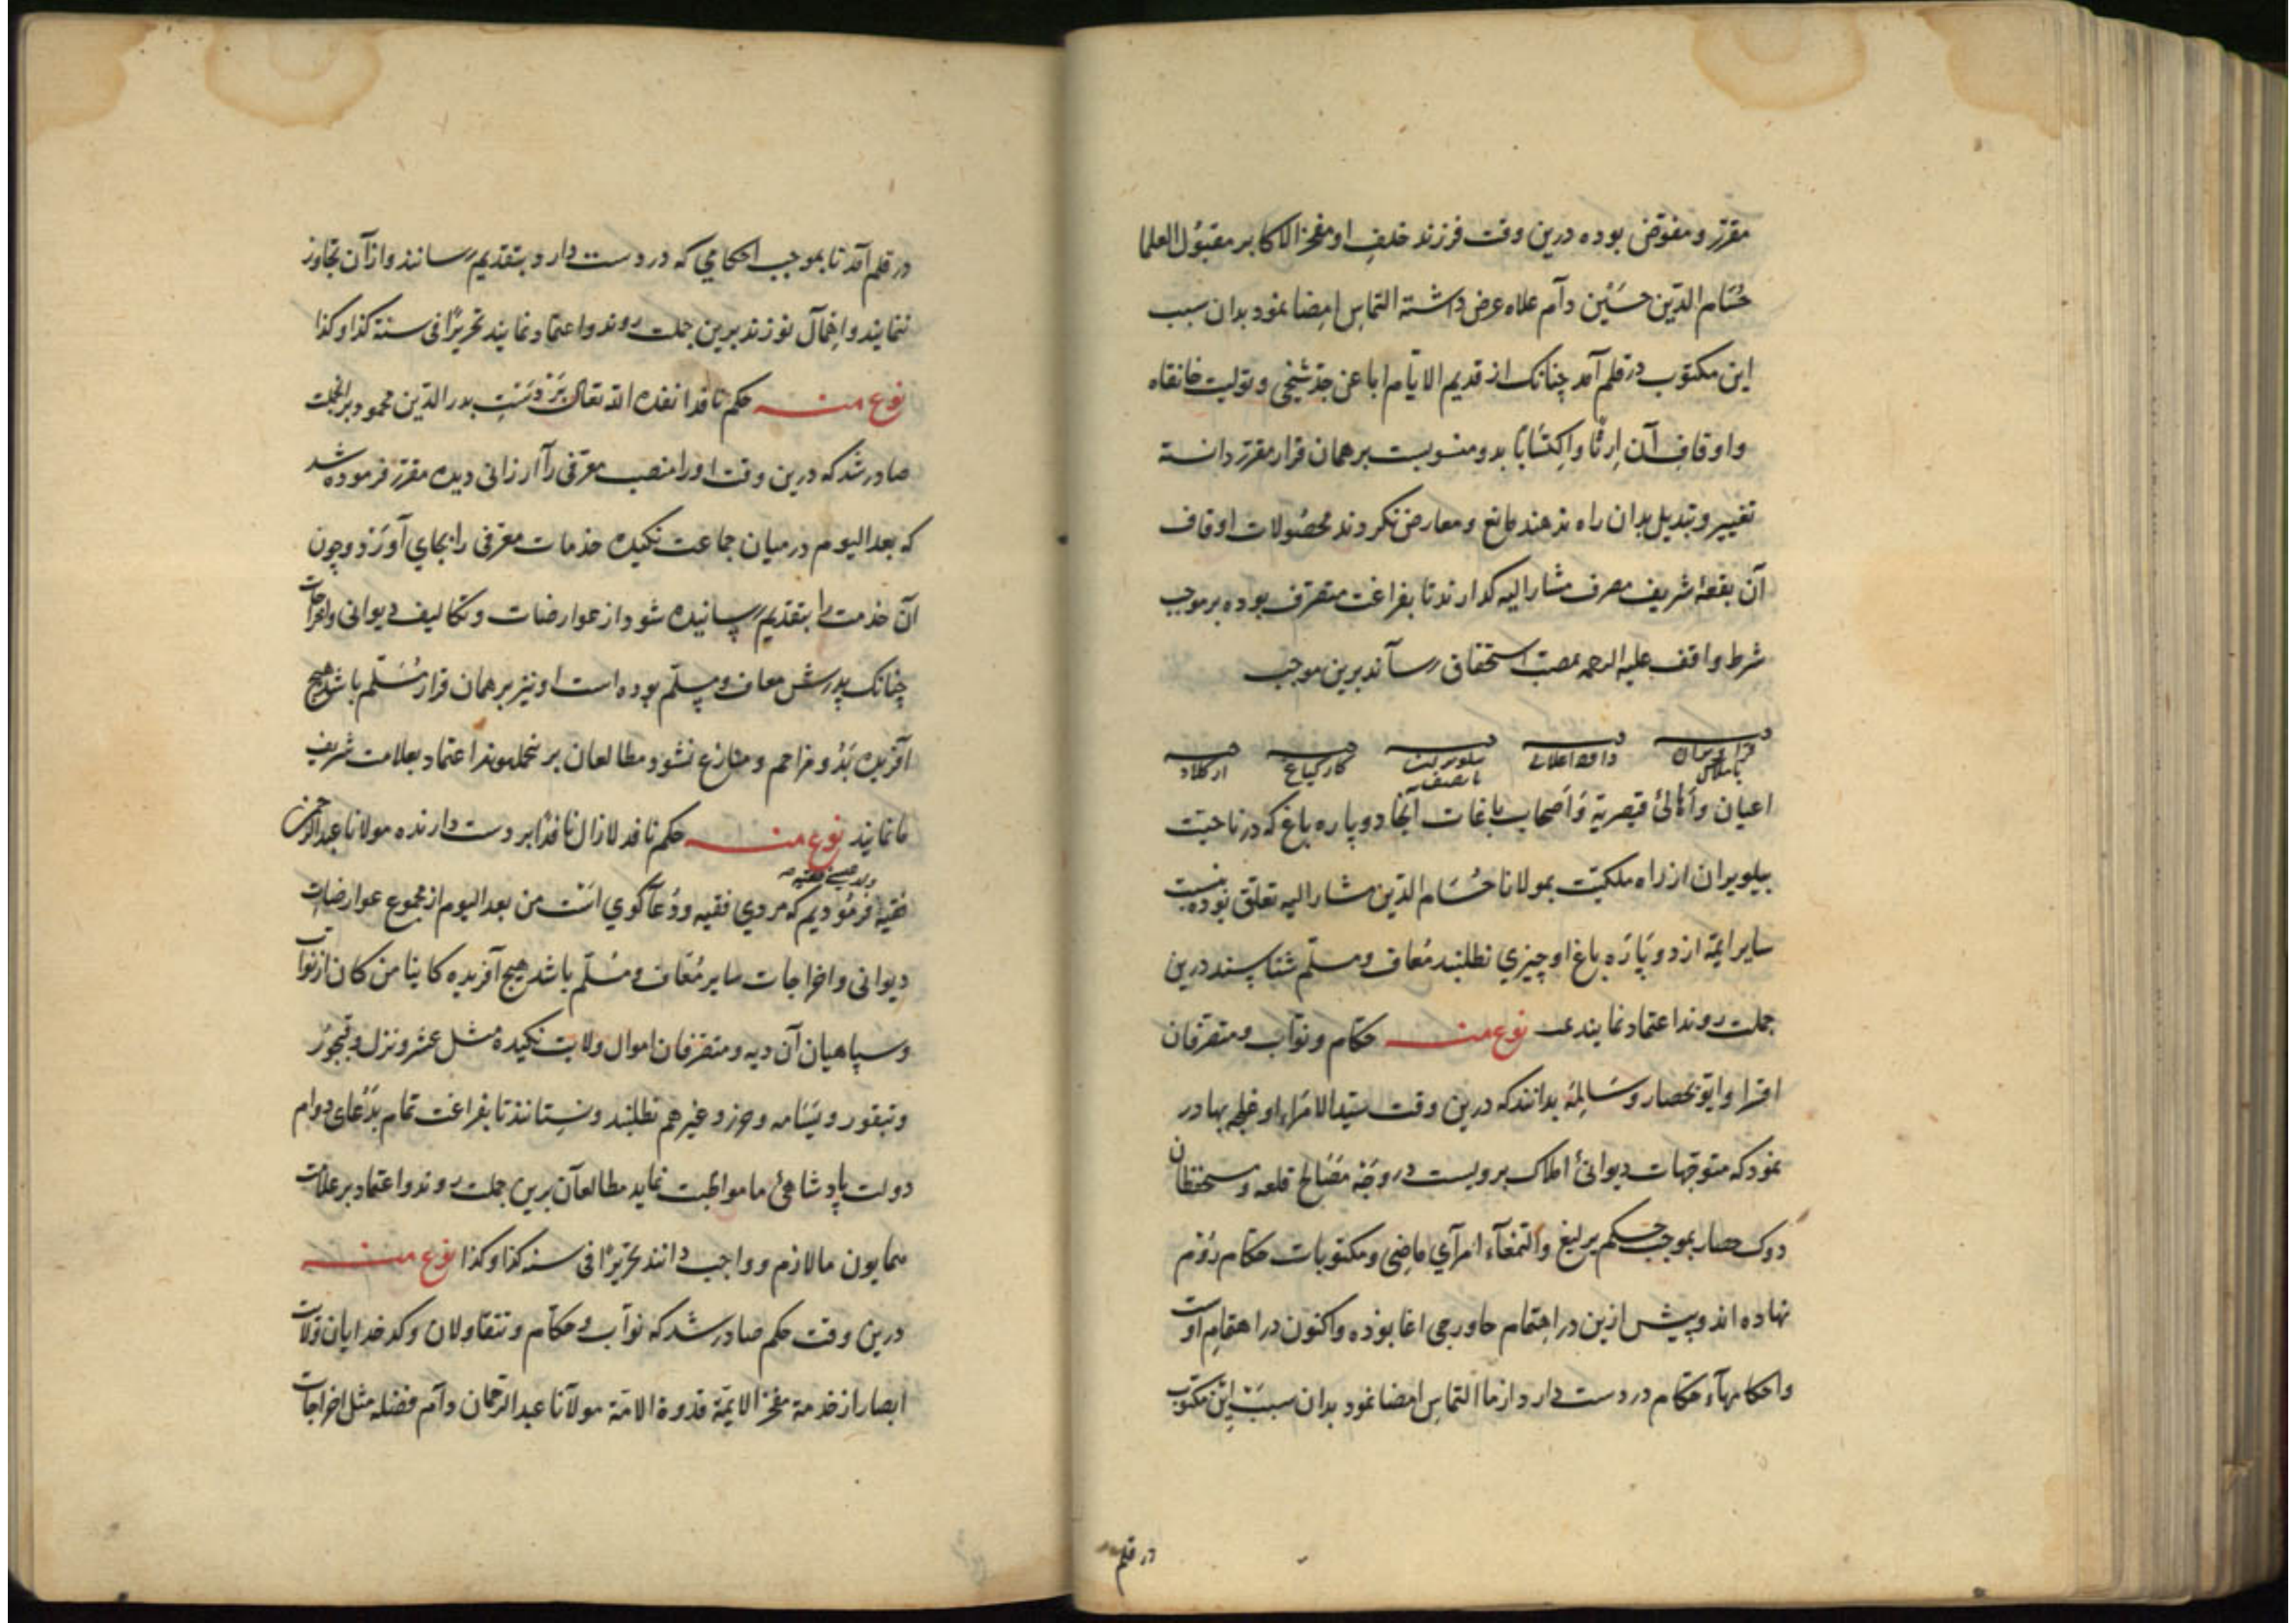 مقرّر و مفوّض بوده درین وقت فرزند خلف او مفخر الاکابر مقبول العلما
حُسَام الدّین حسَین دام علاه عرض داشته التماس امضا نمود بدان سبب
این مکتوب در قلم آمد چنانک از قدیم الایّام ابا عن جدّ شیخی و تولیت خانقاه
و اوقاف آن اِرثًا و اکتسابًا بدو منسوبست بر همان قرار مقرّر دانسته
تغییر و تبدیل بدان راه ندهند مانع و معارض نکردند محصُولات اوقاف
آن بقعهٔ شریف مصرف مشار الیه کدارند تا بفراغت متصرّف بوده بر موجب
شرط واقف علیه الرحمه بمصبّ استحقاق رسآند برین موجب
اعیان و اهالئ قیصریّة و اصحاب باغات آنجا دو پاره باغ که در ناحیت
بیلویران از راه ملکیّت بمولانا حُسَام الدّین مشار الیه تعلّق نوده بنسبت
سایر ایمّه از دو پَارَه باغ او چیزی نطلبند مُعاف و مسلّم شناسند درین
جملت روند اعتماد نمایند نوع منه حکّام و نوّاب و متصرّفان
اقسرا و ایوبحصار و سَالِمه بدانند که درین وقت سیّد الامَراء اوغلجه بهادر
نمود که متوجّهات دیوانئ املاک برویست در وَجْه مَصَالح قلعه و مستحفظان
دوک حصار بموجب حکم یرلیغ و التمغآء امرآی ماضی و مکتوبات حکّام روُم
نهاده اند و پیش ازین در اهتمام حاورجی اغا بوده و اکنون در اهتمام اوست
و احکامهآء حکّام در دست دارد از ما التماس امضا نمود بدان سبب این مکتوب
در قلم
در قلم آمد تا بموجب احکامی که در دست دارد بتقدیم رسانند و از آن تجاوز
ننمایند و اهمال نورزند برین جملت روند و اعتماد نمایند تحریرًا فی سنة کذا و کذا
نوع منه حکم نافد انفذه الله تعالی بَر دسَتِ بدر الدّین محمود بر انجملت
صادر شد که درین وقت او را منصب معرّفی را ارزانی دیده مقرّر فرموده شد
که بعد الیوم در میان جماعت نکیده خدمات معرّفی را بجای آورَد و چون
آن خدمت را بتقدیم رسانیده شود از عوارضات و تکالیف دیوانی و اخراجات
چنانک پدرش معاف و مسلّم بوده است او نیز بر همان قرار مُسَلّم باشد هیچ
آفریده بَدُو مزاحم و منازع نشود مطالعان بر نجمله روند اعتماد بعلامت شریف
ما نمایند نوع منه حکم نافد لازال نافذًا بر دست دارنده مولانا عبد الرحمن
فقیه فرمُودیم که مردی فقیه و دُعآ کوی است من بعد الیوم از مجموع عوارضات
دیوانی و اخراجات سایر مُعَاف و مُسلّم باشد هیچ آفریده کاینا من کان از نوّاب
و سپاهیان آن دیه و متصرّفان اموال ولایت نکیده مثل عشر و نزل و قبجوُر
و تبقور و یسَامه و حرز و غیرهم نطلبند و نستانند تا بفراغت تمام بدُعای دوام
دولت پادشاهئ ما مواظبت نماید مطالعآن برین جملت روند و اعتماد بر علامت
همایون ما لازم و واجب دانند تحریرًا فی سنه کذا و کذا نوع منه
درین وقت حکم صادر شد که نوّاب و حکّام و تتقاولان و کدخدایان ولات
ابصار از خدمة مفخر الایمّة قدوة الامّة مولآنا عبد الرّحمان دام فضله مثل اخراجات